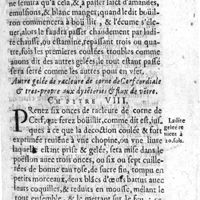 ne servira qu'a cela, & à faire laict d'amandes,
onctions, & blanc manger, quand ledit bouïl-
lon commencera à bouïllir, & l'écume s'éle-
ver, alors le faudra passer chaudement par ladi-
te chausse, ou estamine, repassant trois ou qua-
tre fois les premieres coulées troubles comme
nous avons dit des autres gelées, le tout estant passé
sera serré comme les autres pour en user.
Autre gelée de racleure de corne de Cerf cordiale
& tres-propre aux dysenteries & flux de ventre.
CHAPITRE VIII.
PRenez six onces de racleure de corne de
Cerf, que ferez bouïllir, comme dit est, jus-
ques à ce que la decoction coulée & fort
exprimée revienne à une chopine, ou vin leur
laquelle estant prise & gelée, sera mise dans le
poeslon avec trois onces, ou six ou sept cuille-
rées de bonne eau rose, de sucre fin, rompu en
morceaux, deux blancs d'œufs battus avec
leurs coquilles, & reduits en mousse, meslant
le tout ensemble, & aussi
Ladite
gelée re
vient à
10. sols.